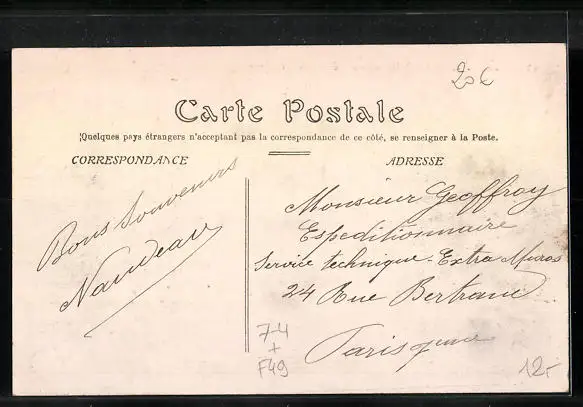 20€
Carte Postale
Quelques pays étrangers n'acceptant pas la correspondance de ce côté, se renseigner à la Poste.
CORRESPONDANCE
Bons Souvenirs
Naudeau
ADRESSE
Monsieur Geoffroy
Expeditionnaire
Service technique. Extra Muros
24 Rue Bertrand
Paris 7eme
74
+
F49
12,-